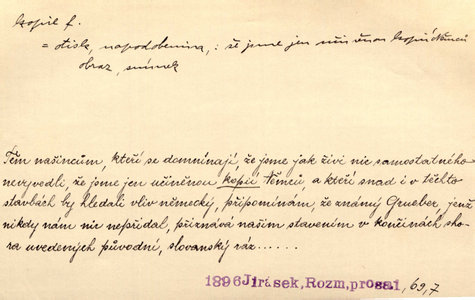 kopie f.
= otisk, napodobenina, : že jsme jen učiněnou kopií Němců
obraz, snímek
Těm našincům, kteří se domnívají, že jsme jak živi nic samostatného
nevyvedli, že jsme jen učiněnou kopií Němců, a kteří snad i v těchto
stavbách by hledali vliv německý, připomínám, že známý Grueber, jenž
nikdy nám nic nepřidal, přiznává našim stavením v končinách sho-
ra uvedených původní, slovanský ráz......
1896 Jirásek, Rozm, prosa I, 69, 7